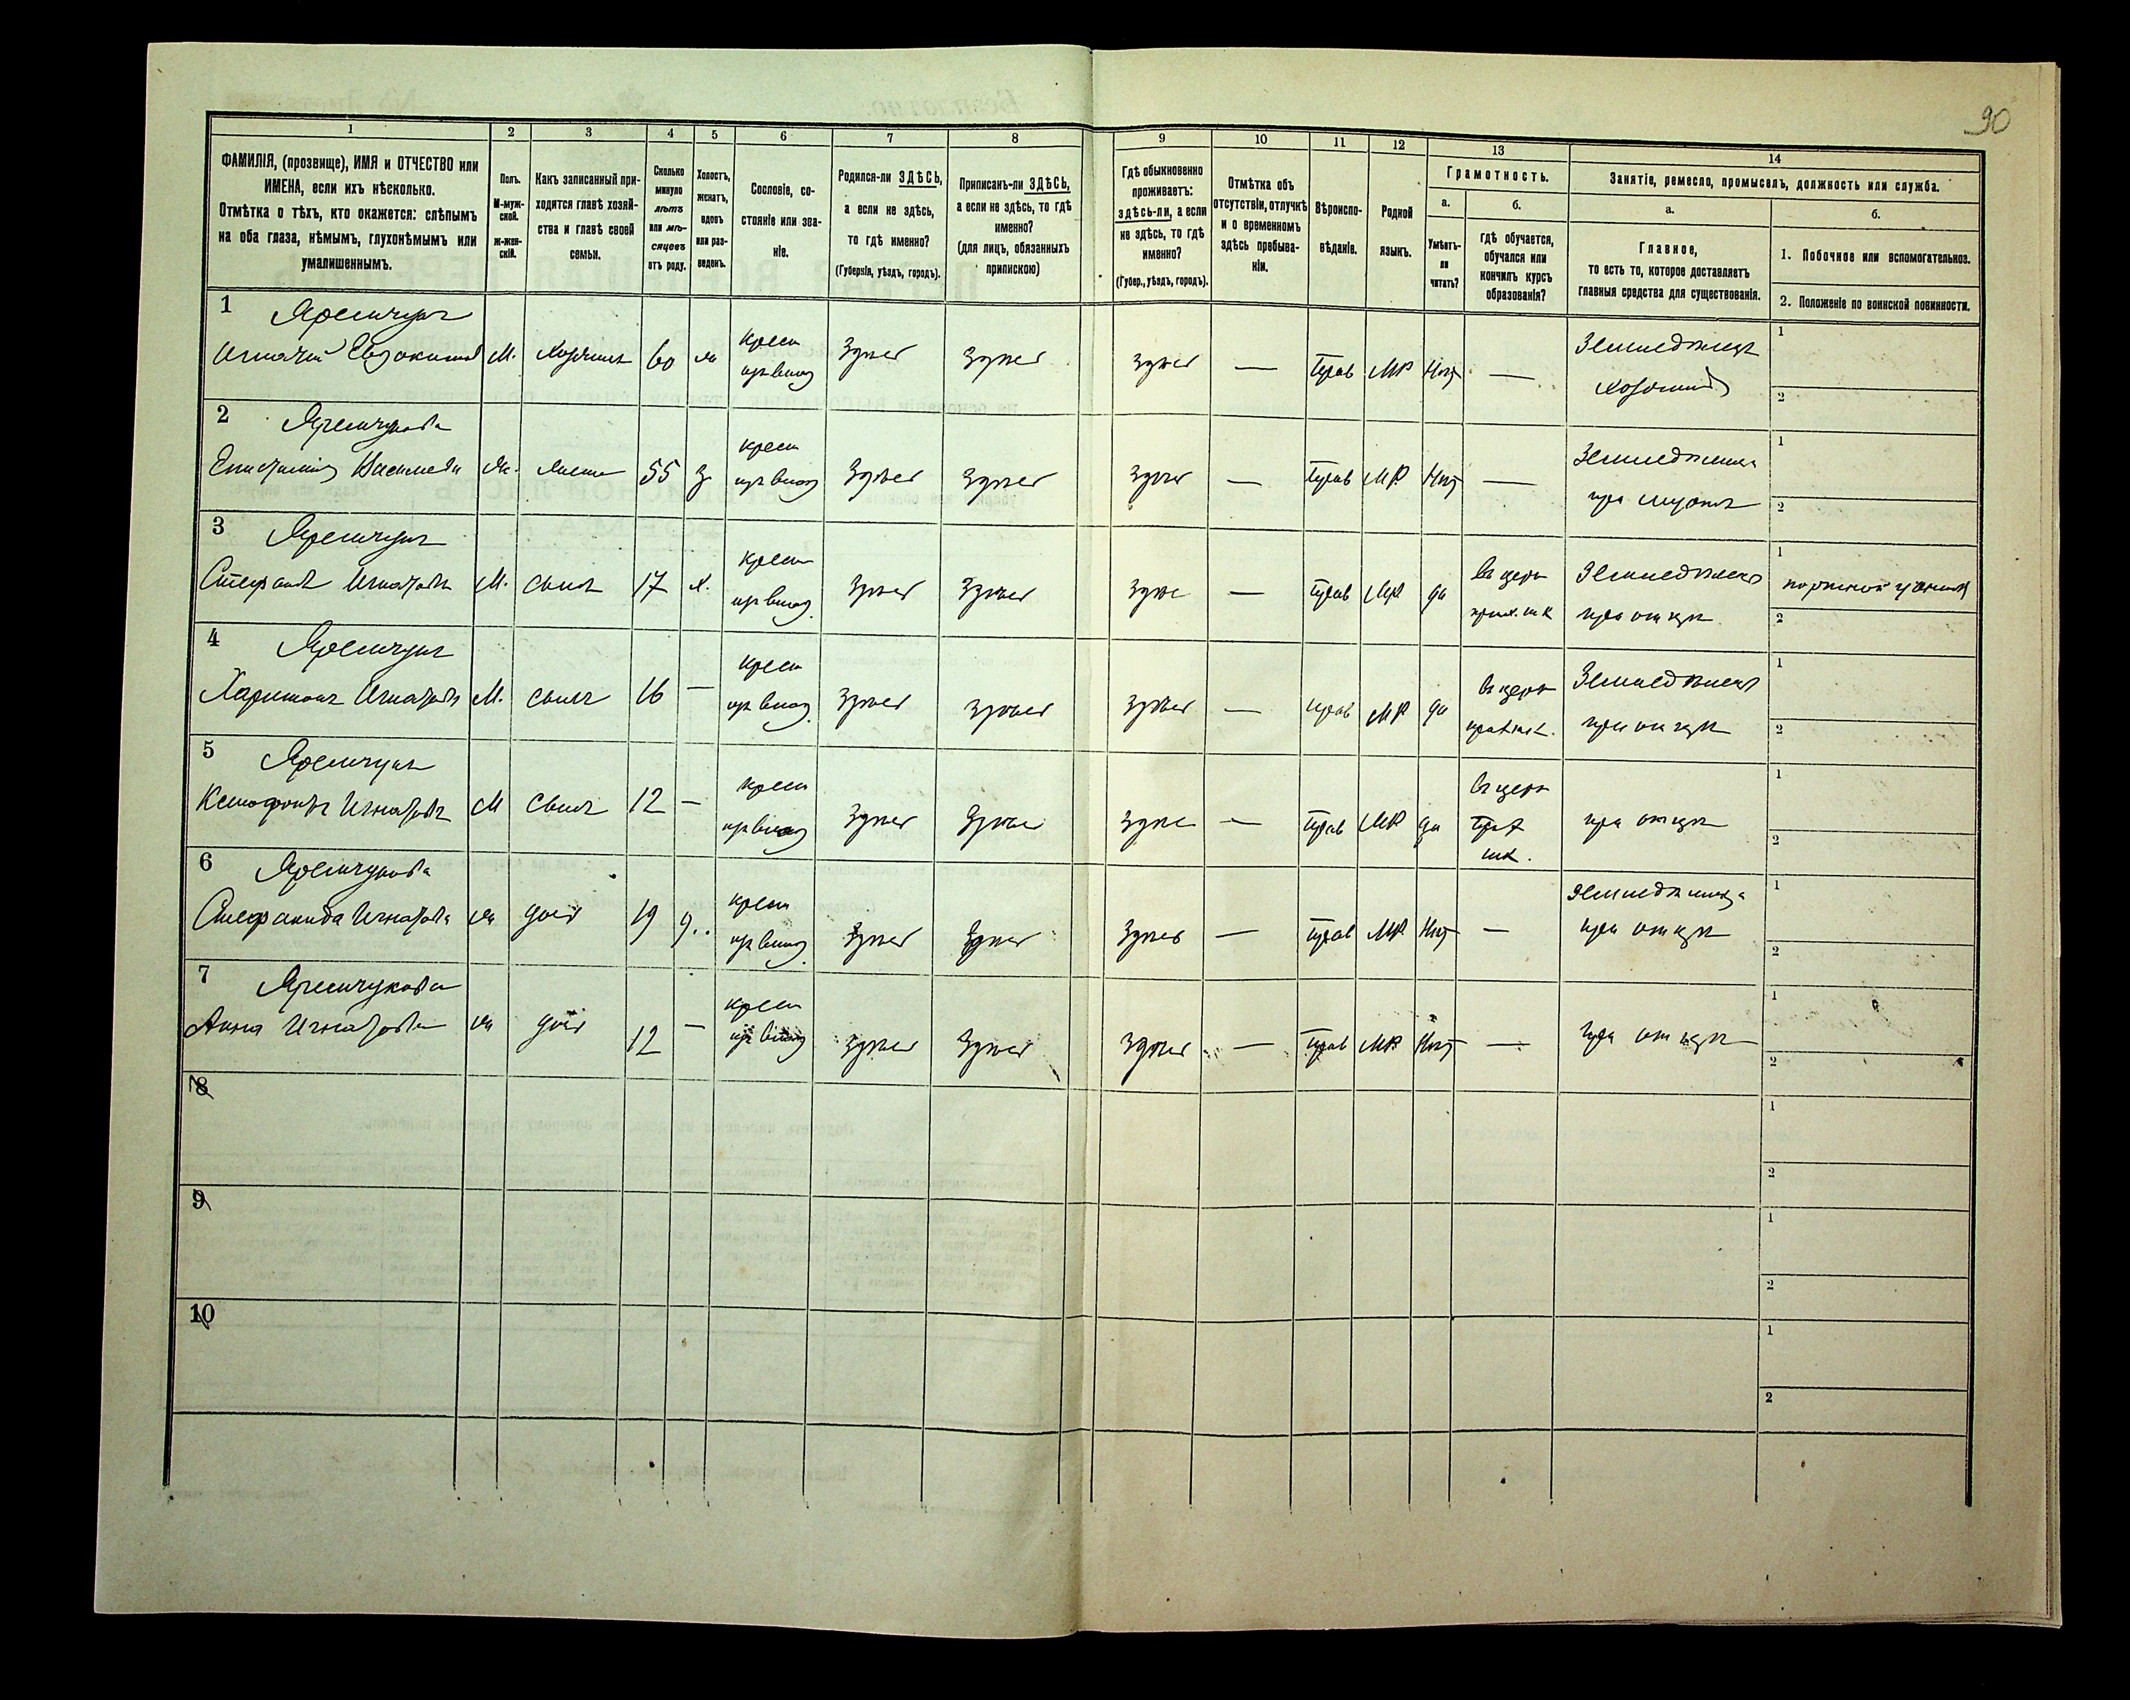 90
1
2
3
4
5
6
7
8
9
10
11
12
13
14
ФАМИЛІЯ, (прозвище), ИМЯ и ОТЧЕСТВО или
ИМЕНА, если ихъ нѣсколько.
Отмѣтка о тѣхъ, кто окажется: слѣпымъ
на оба глаза, нѣмымъ, глухонѣмымъ или
умалишеннымъ.
Полъ.
М-муж-
ской.
Ж-жен-
скій.
Какъ записанный при-
ходится главѣ хозяй-
ства и главѣ своей
семьи.
Сколько
минуло
лѣтъ
или мѣ-
сяцевъ
отъ роду.
Холостъ,
женатъ,
вдовъ
или раз-
веденъ.
Сословіе, со-
стояніе или зва-
ніе.
Родился-ли ЗДѢСЬ,
а если не здѣсь,
то гдѣ именно?
(Губернія, уѣздъ, городъ).
Приписанъ-ли ЗДѢСЬ,
а если не здѣсь, то гдѣ
именно?
(для лицъ, обязанныхъ
припискою)
Гдѣ обыкновенно
проживаетъ:
здѣсь-ли, а если
не здѣсь, то гдѣ
именно?
(Губер., уѣздъ, городъ).
Отмѣтка объ
отсутствіи, отлучкѣ
и о временномъ
здѣсь пребыва-
ніи.
Вѣроиспо-
вѣданіе.
Родной
языкъ.
Грамотность.
а.
Умѣетъ-
ли
читать?
б.
гдѣ обучается,
обучался или
кончилъ курсъ
образованія?
Занятіе, ремесло, промыселъ, должность или служба.
а.
Главное,
то есть то, которое доставляетъ
главныя средства для существованія.
б.
1. Побочное или вспомогательное.
2. Положеніе по воинской повинности.
1
Игнатій Евдокимов М. Хозяинъ 60 ж крест
здѣсь здѣсь здѣсь — Прав МР Нѣт —
Земледѣлецъ
хозяинъ
1
2
2
Васильева ж. жена 55 з крест
здѣсь здѣсь здѣсь — Прав МР Нѣт —
при мужѣ
1
2
3
Стефанъ Игнатовъ М. сынъ 17 х. крест
здѣсь здѣсь здѣс — Прав МР да
въ церк
прих. шк
при отцѣ
1
2
4
Харитонъ Игнатовъ М. сынъ 16 — крест
здѣсь здѣсь здѣсь — прав МР да
въ церк
при отцѣ
1
2
5
Ксенофонтъ Игнатовъ М сынъ 12 — крест
здѣсь здѣсь здѣс — Прав МР да
въ церк
шк.
при отцѣ
1
2
6
Стефанида Игнатова ж доч 19 д. крест
здѣсь здѣсь здѣсь — Прав МР Нѣт —
при отцѣ
1
2
7
Анна Игнатова ж доч 12 — крест
здѣсь здѣсь здѣсь — Прав МР Нѣт —
при отцѣ
1
2
8
1
2
9
1
2
10
1
2